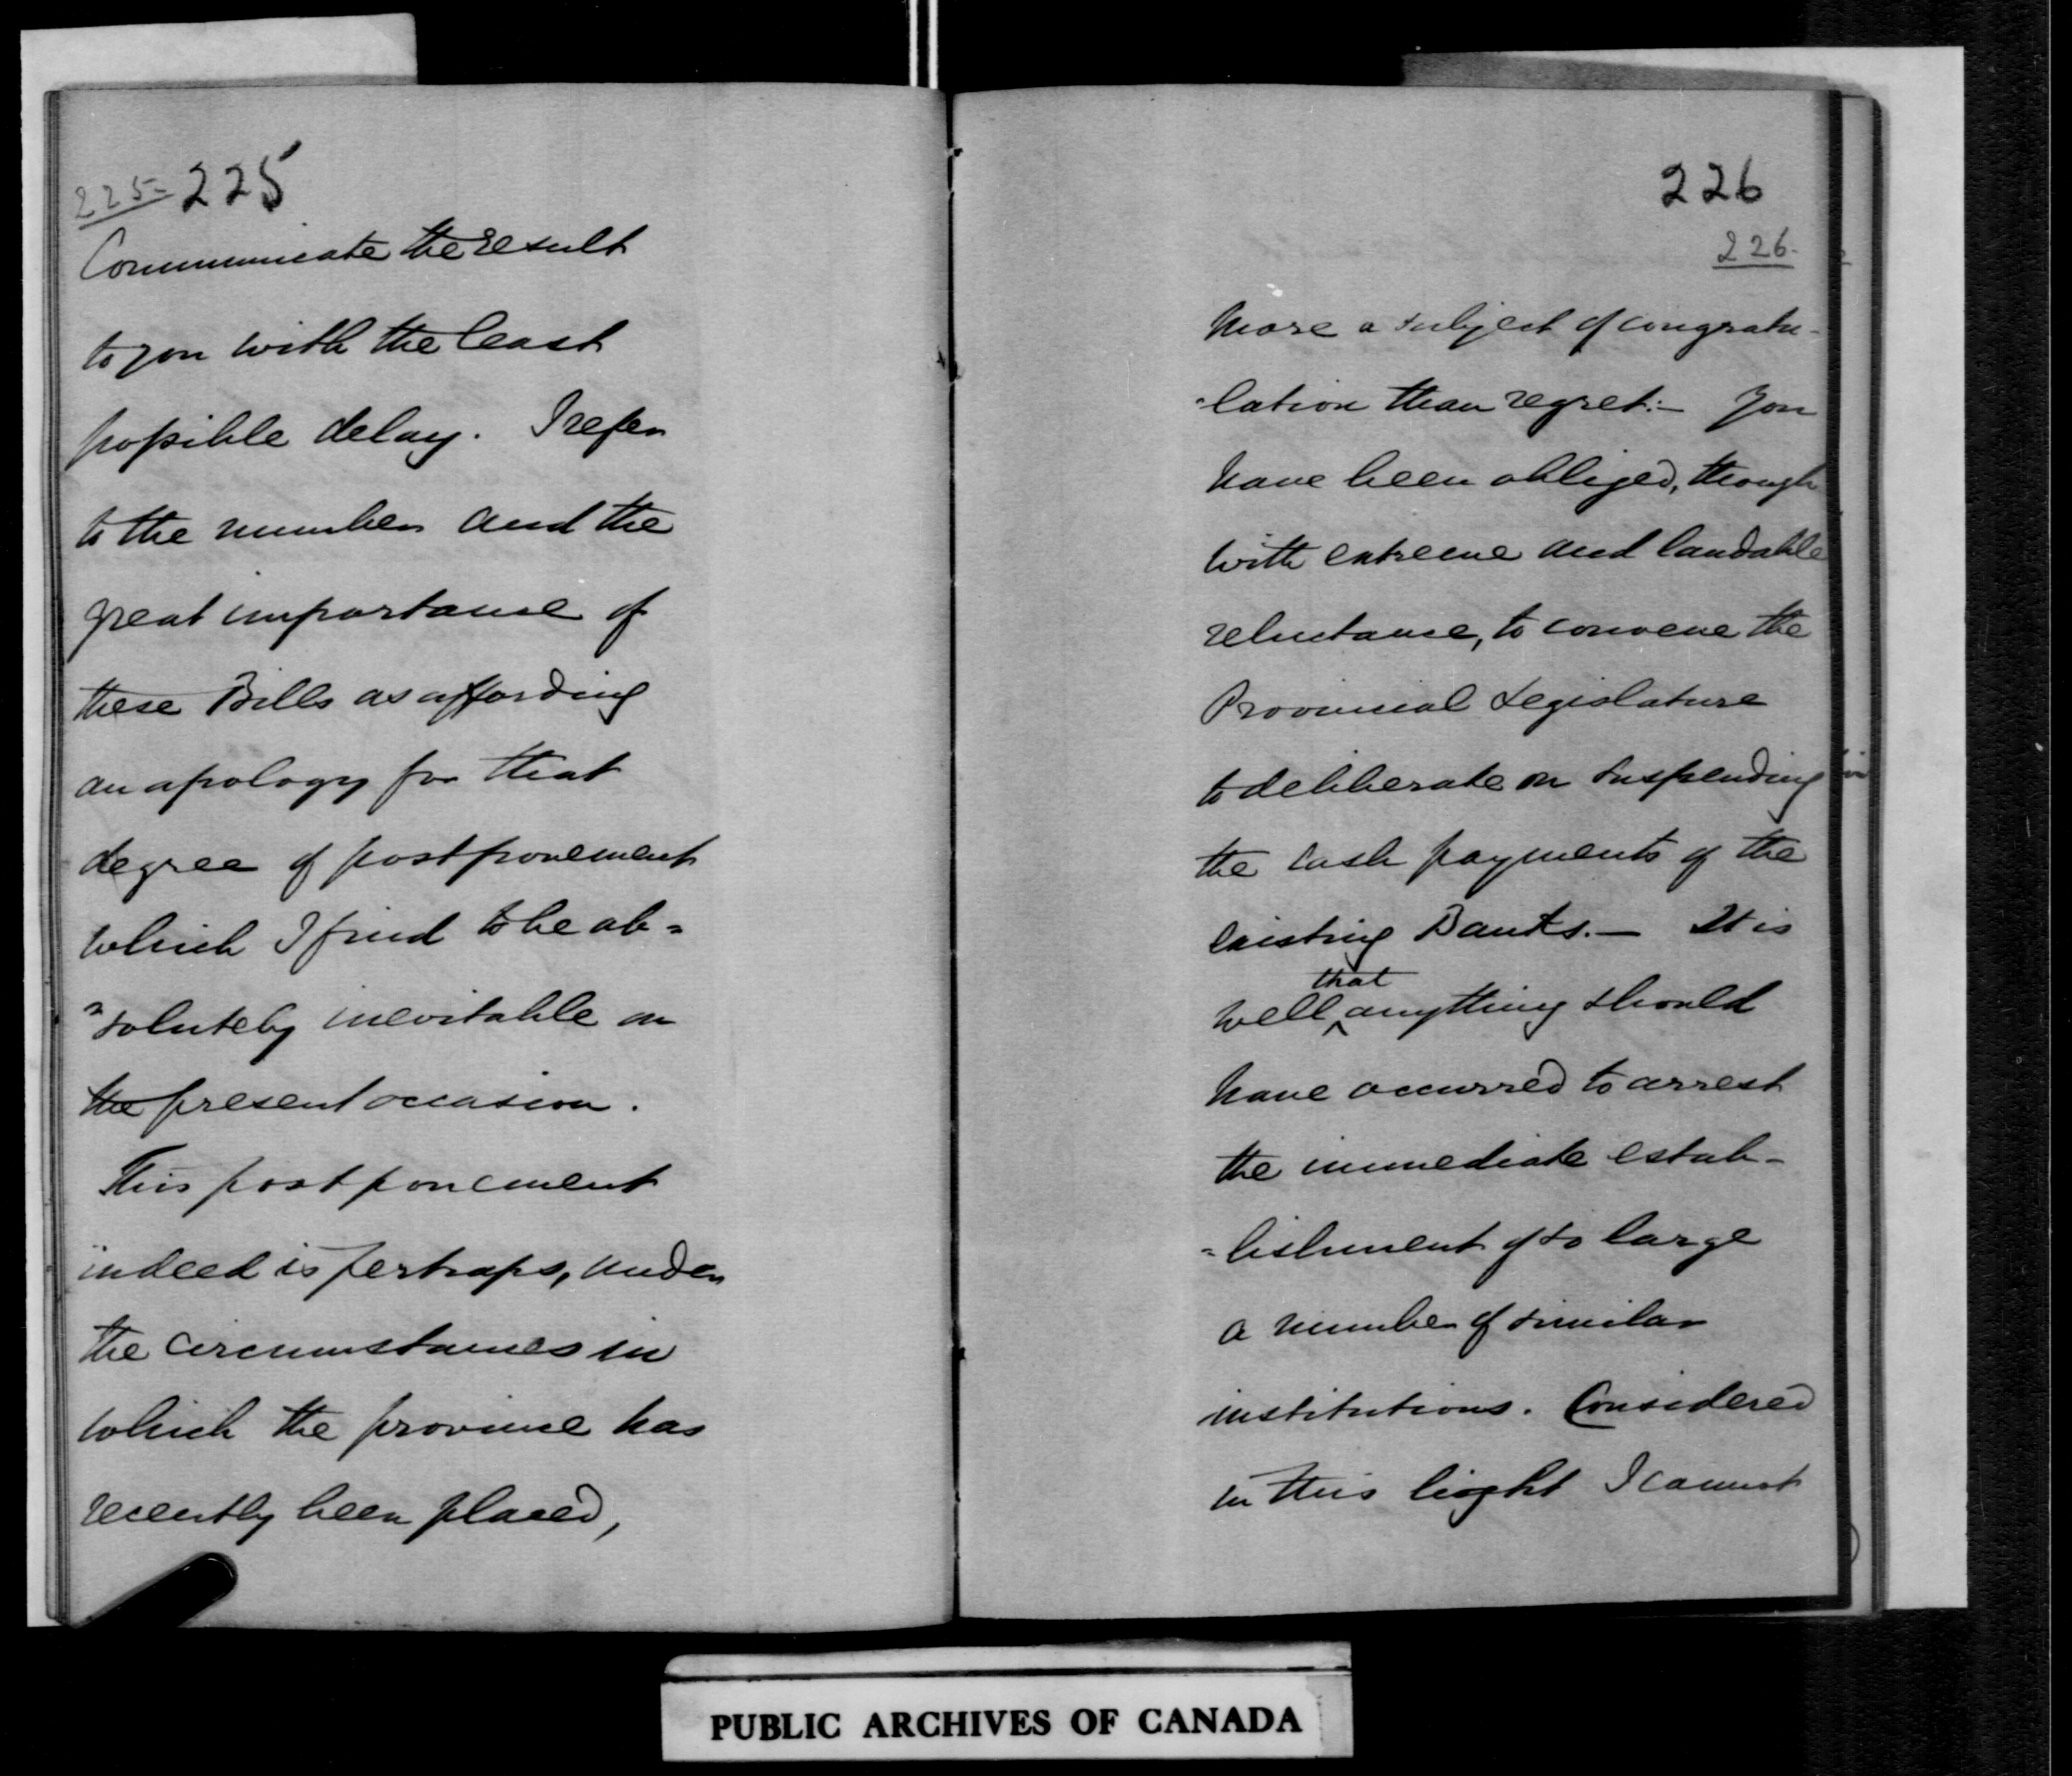 225= 225
Communicate the result
to you with the least
possible delay. I refer
to the number and the
great importance of
these Bills as affording
an apology for that
degree of postponement
which I find to be ab=
"solutely inevitable on
the present occasion.
This postponement
indeed is perhaps, under
the circumstances in
which the province has
recently been placed,
226
226.
more a subject of congratu-
-lation than regret:— You
have been obliged, though
with extreme and laudable
reluctance, to convene the
Provincial Legislature
to deliberate on suspending
the cash payments of the
existing Banks.— It is
that
well ^ anything should
have occurred to arrest
the immediate estab-
=lishment of so large
a number of similar
institutions. Considered
in this light I cannot
PUBLIC ARCHIVES OF CANADA